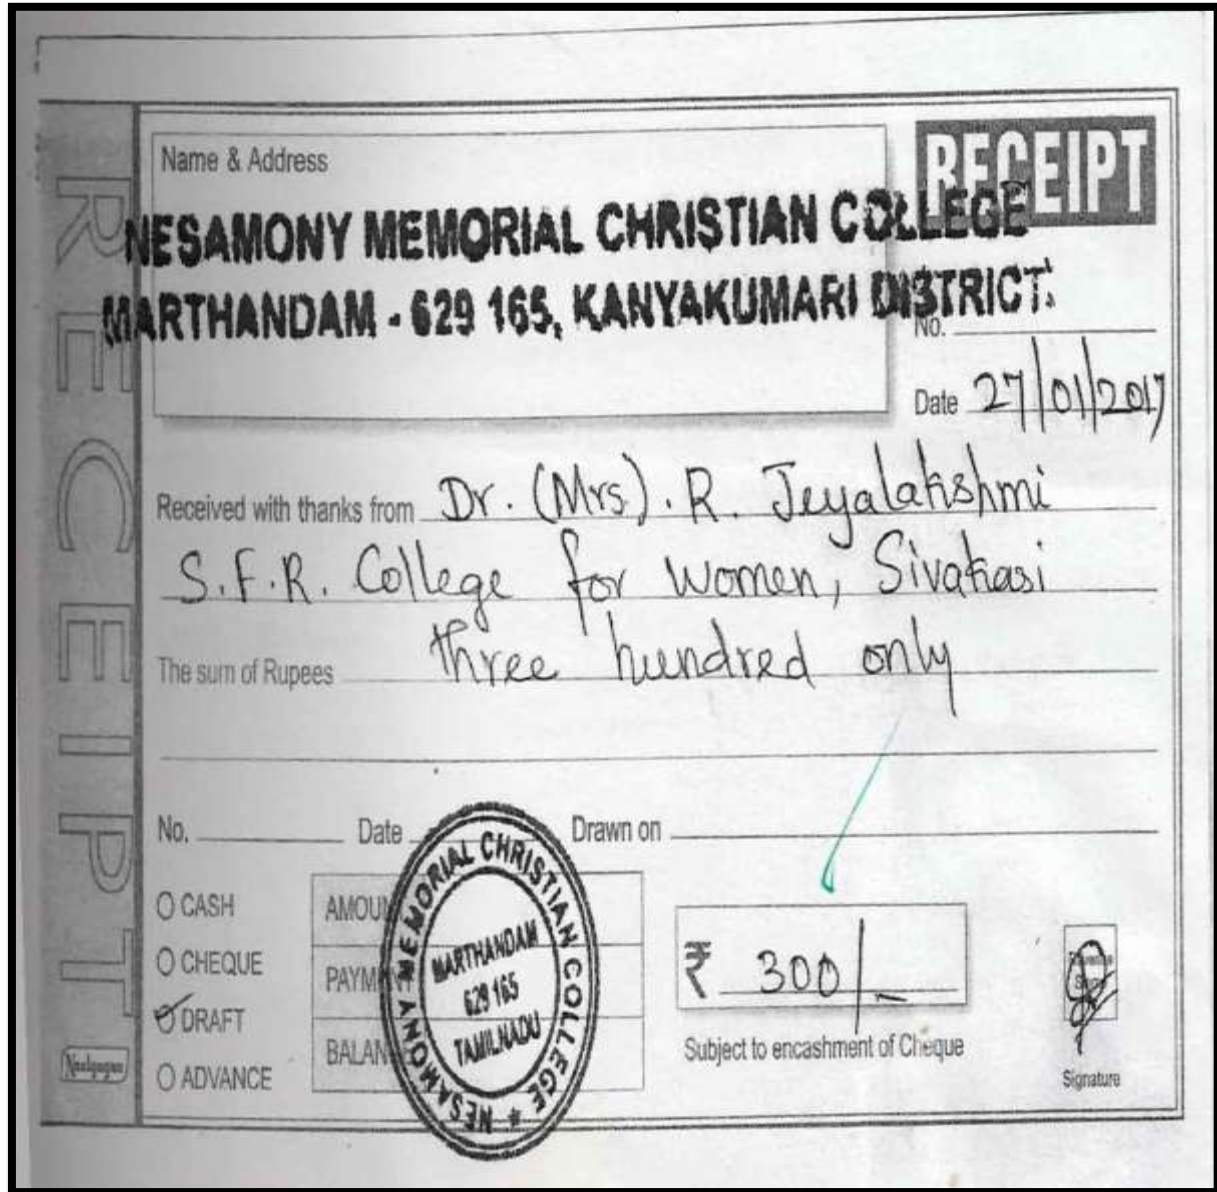 RECEIPT
Name & Address
RECEIPT
NESAMONY MEMORIAL CHRISTIAN COLLEGE
MARTHANDAM - 629 165, KANYAKUMARI DISTRICT.
No.
Date 27/01/2017
Received with thanks from Dr. (Mrs). R. Jeyalakshmi
S.F.R. College for Women, Sivakasi
The sum of Rupees three hundred only
No. Date Drawn on
CASH
CHEQUE
DRAFT
ADVANCE
NESAMONY MEMORIAL CHRISTIAN COLLEGE *
MARTHANDAM
629 165
TAMILNADU
₹ 300/-
Subject to encashment of Cheque
Signature